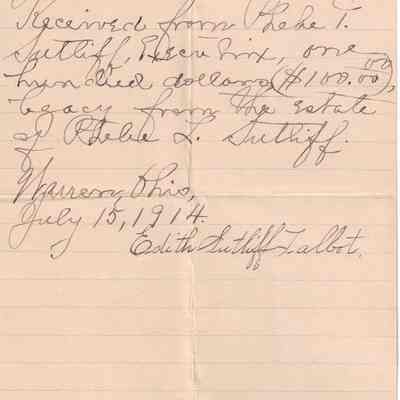 Received from Phebe T.
Sutliff, Executrix, one
hundred dollars ($100.00),
legacy from the estate
of Phebe L. Sutliff.
Warren, Ohio,
July 15, 1914.
Edith Sutliff Talbot.